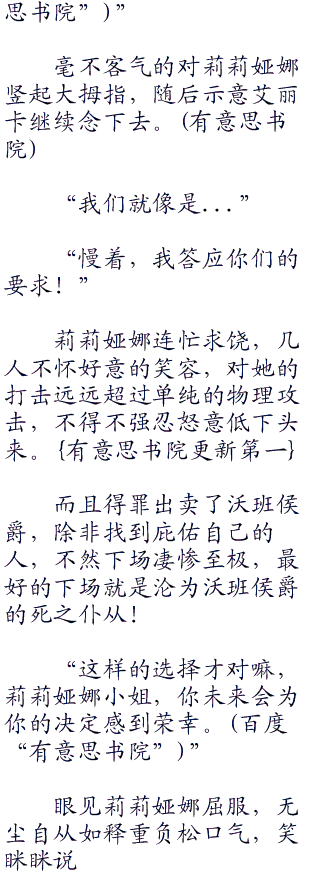 思书院”)”
毫不客气的对莉莉娅娜
竖起大拇指，随后示意艾丽
卡继续念下去。(有意思书
院)
“我们就像是...”
“慢着，我答应你们的
要求！”
莉莉娅娜连忙求饶，几
人不怀好意的笑容，对她的
打击远远超过单纯的物理攻
击，不得不强忍怒意低下头
来。{有意思书院更新第一}
而且得罪出卖了沃班侯
爵，除非找到庇佑自己的
人，不然下场凄惨至极，最
好的下场就是沦为沃班侯爵
的死之仆从！
“这样的选择才对嘛，
莉莉娅娜小姐，你未来会为
你的决定感到荣幸。(百度
“有意思书院”)”
眼见莉莉娅娜屈服，无
尘自从如释重负松口气，笑
眯眯说